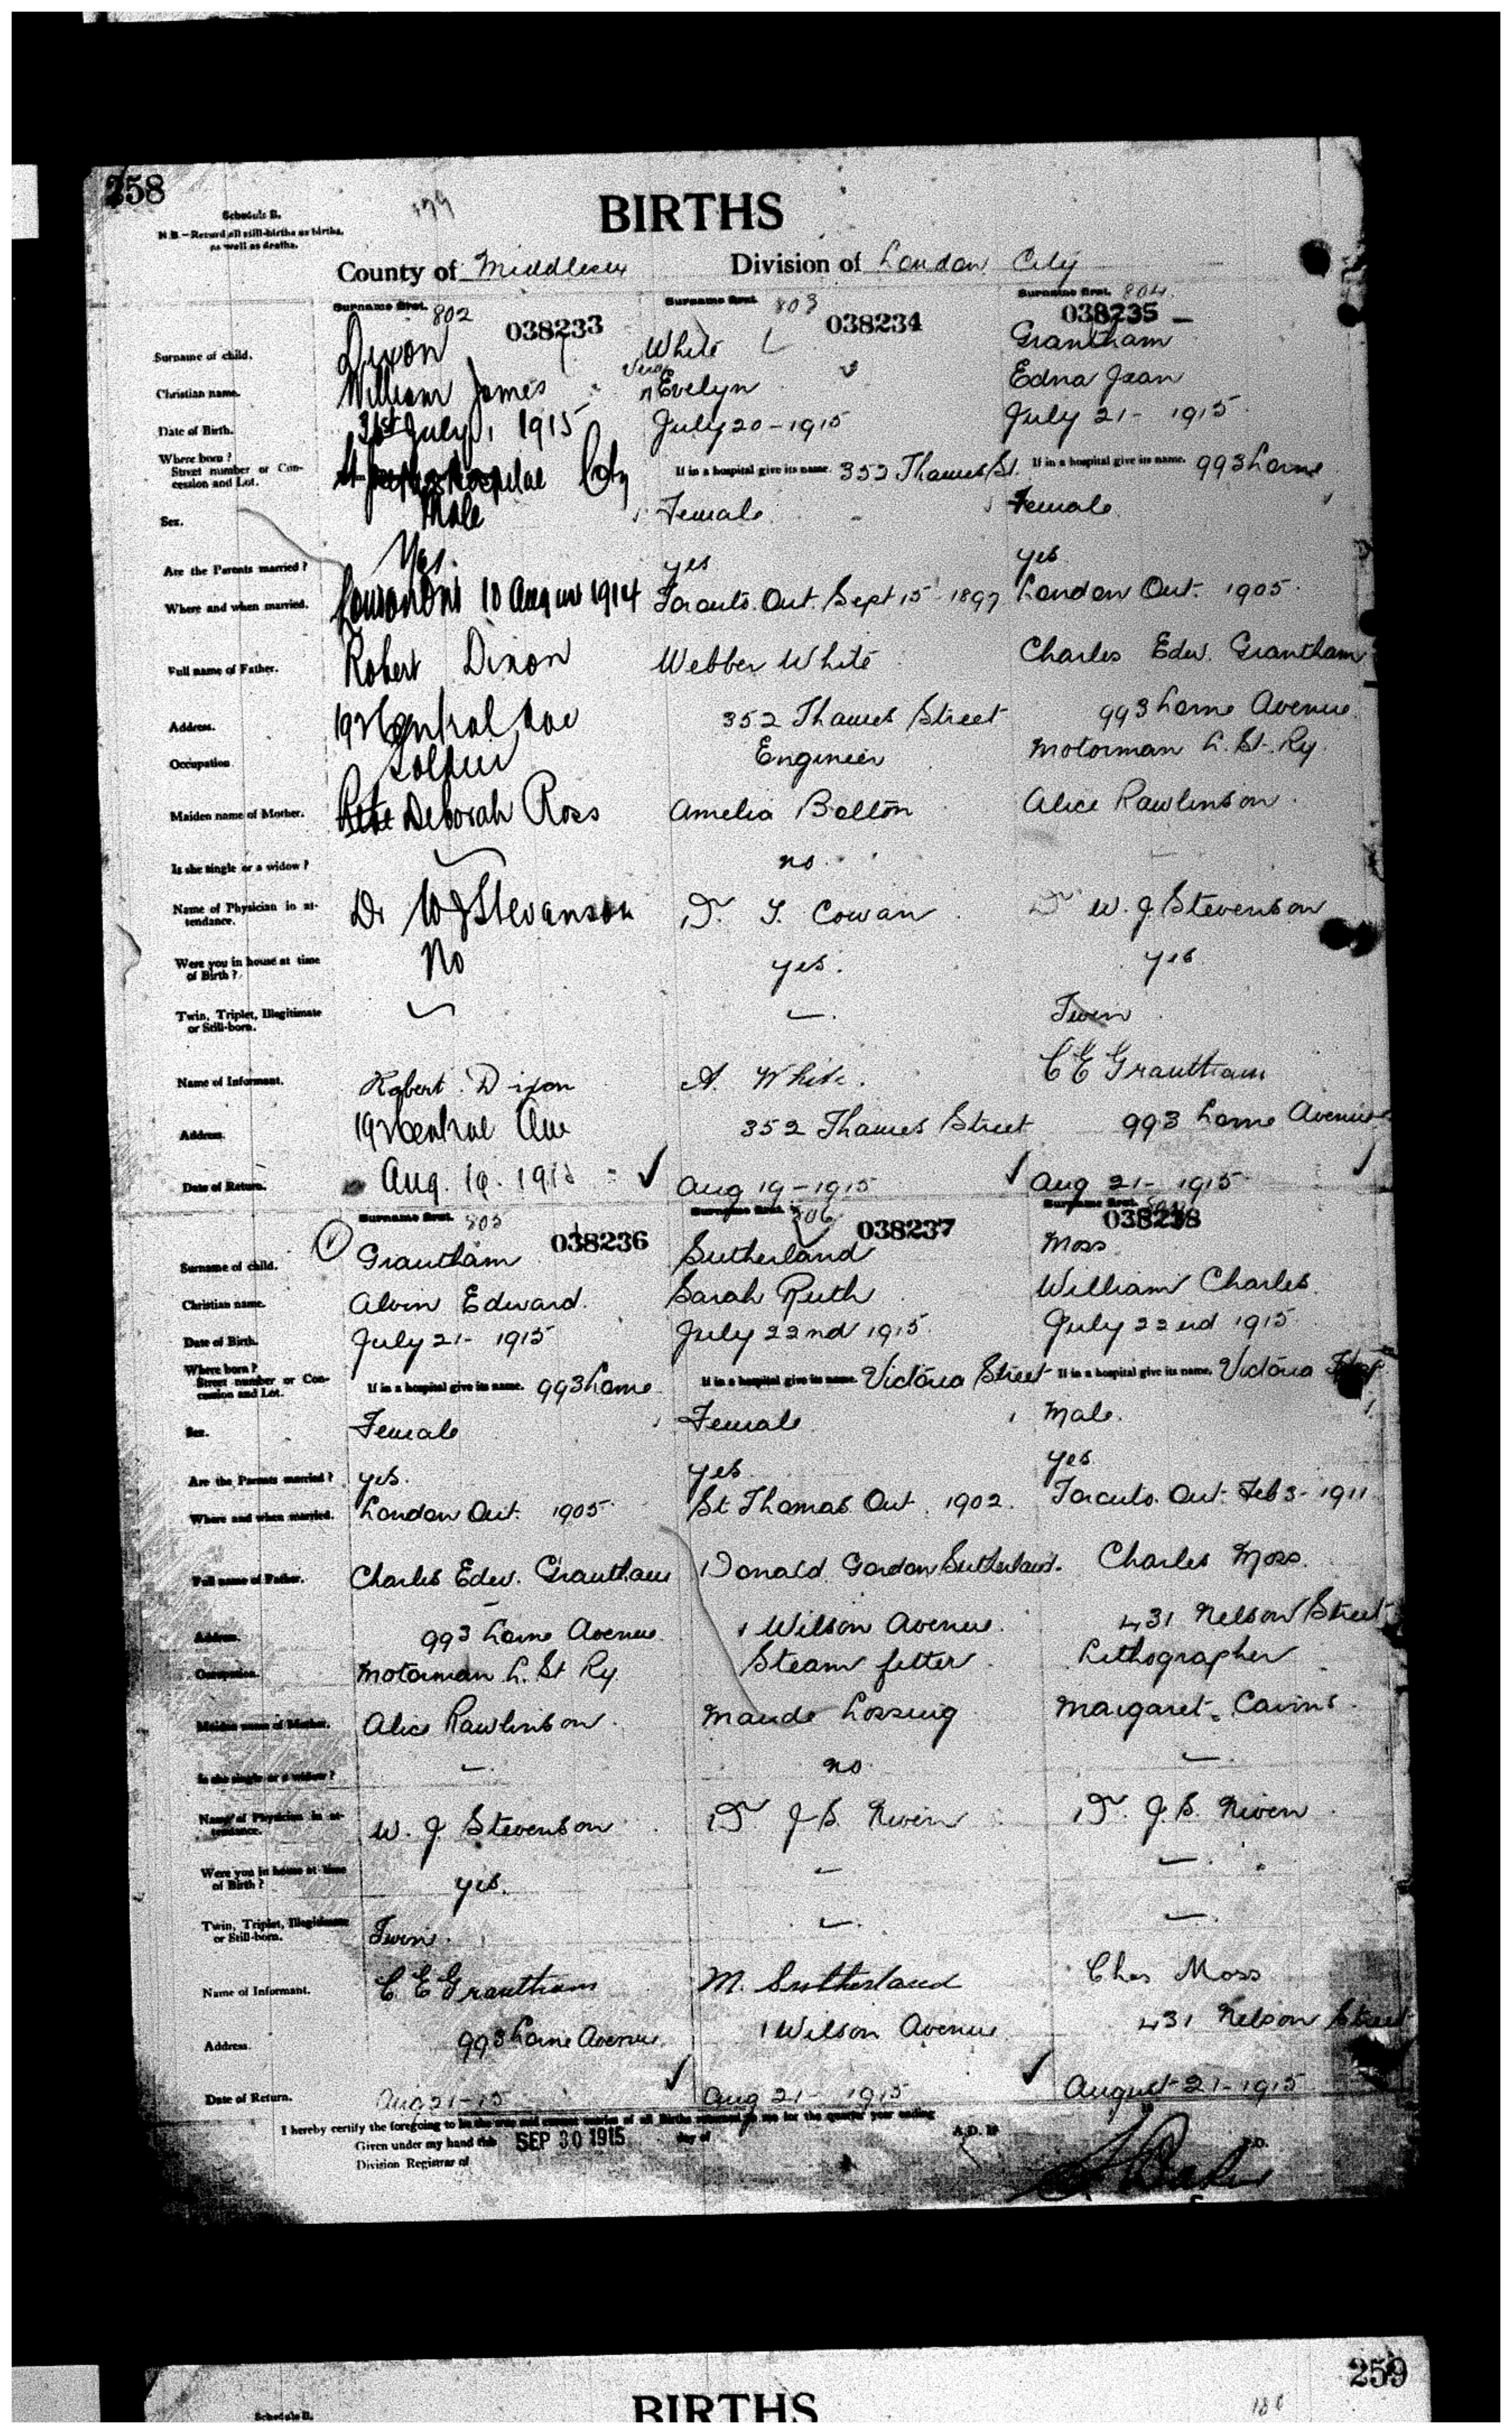 258
179
Schedule B.
N.B.—Record all still-births as births,
as well as deaths.
BIRTHS
County of Middlesex Division of London City
Surname first. 802 Surname first. 803 Surname first. 804
038233 038234 038235
Surname of child. Dixon White Grantham
Christian name. William James Vera Evelyn Edna Jean
Date of Birth. 31st July, 1915 July 20-1915 July 21- 1915
Where born? Street number or Concession and Lot. St Josephs Hospital City If in a hospital give its name. 352 Thames St. If in a hospital give its name. 993 Lorne
Sex. Male Female Female
Are the Parents married? Yes. yes yes
Where and when married. London Ont 10 August 1914 Toronto. Ont. Sept 15 1897 London Ont. 1905
Full name of Father. Robert Dixon Webber White Charles Edw. Grantham
Address. Central Ave 352 Thames Street 993 Lorne Avenue
Occupation Soldier Engineer Motorman L. St. Ry.
Maiden name of Mother. Deborah Ross Amelia Bolton Alice Rawlinson
Is she single or a widow? no
Name of Physician in attendance. Dr W J Stevanson Dr. T. Cowan Dr W. J. Stevenson
Were you in house at time of Birth? No yes. yes
Twin, Triplet, Illegitimate or Still-born. — — Twin
Name of Informant. Robert Dixon A. White. C E Grantham
Address. Central Ave 352 Thames Street 993 Lorne Avenue
Date of Return. Aug. 1915 Aug 19-1915 Aug 21- 1915
Surname first. 805 Surname first. 806 Surname first.
038236 038237 038238
Surname of child. Grantham Sutherland Moss
Christian name. Alvin Edward. Sarah Ruth William Charles
Date of Birth. July 21- 1915 July 22nd 1915 July 22nd 1915
Where born? Street number or Concession and Lot. If in a hospital give its name. 993 Lorne If in a hospital give its name. Victoria Street If in a hospital give its name. Victoria
Sex. Female Female Male.
Are the Parents married? yes. yes yes
Where and when married. London Ont. 1905 St Thomas Ont. 1902. Toronto. Ont. Feb 3- 1911
Full name of Father. Charles Edw. Grantham Donald Gordon Sutherland. Charles Moss.
Address. 993 Lorne Avenue 1 Wilson Avenue. 431 Nelson Street
Occupation. Motorman L. St Ry. Steam fitter Lithographer
Maiden name of Mother. Alice Rawlinson. Maude Lossing Margaret Cavins
Is she single or a widow? — no —
Name of Physician in attendance. W. J. Stevenson Dr. J S. Niven Dr. J. S. Niven
Were you in house at time of Birth? yes. — —
Twin, Triplet, Illegitimate or Still-born. Twin. — —
Name of Informant. C. E Grantham M. Sutherland Chas Moss
Address. 993 Lorne Avenue. 1 Wilson Avenue 431 Nelson Street
Date of Return. Aug 21-15 Aug 21- 1915 August 21-1915
I hereby certify the foregoing to be the true and correct entries of all Births returned to me for the quarter year ending
Given under my hand this SEP 30 1915 day of A.D. 19
Division Registrar of
259
Schedule B.
BIRTHS